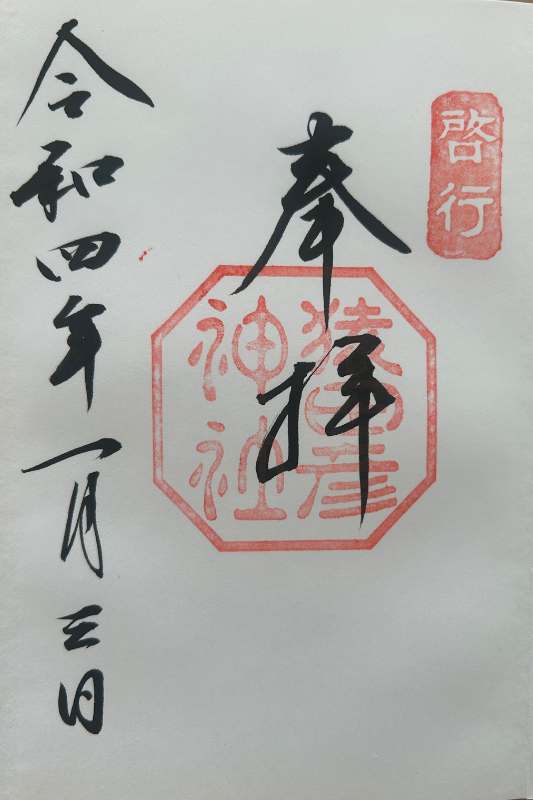 啓行
奉拝
猿田彦
神社
令和四年一月三日